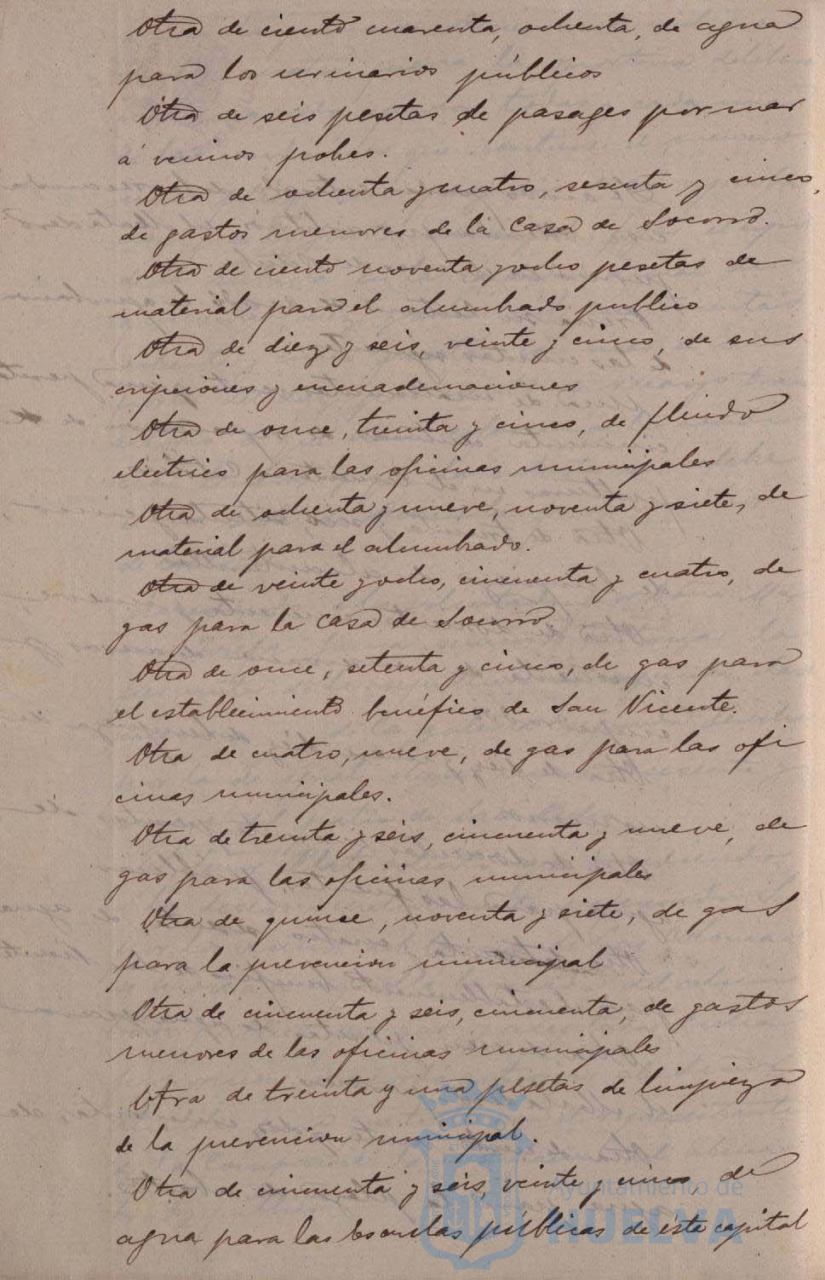 Otra de ciento cuarenta, ochenta, de agua
para los urinarios públicos
Otra de seis pesetas de pasages por mar
á vecinos pobres.
Otra de ochenta y cuatro, sesenta y cinco,
de gastos menores de la Casa de Socorro.
Otra de ciento noventa y ocho pesetas de
material para el alumbrado publico
Otra de diez y seis, veinte y cinco, de sus
cripciones y encuadernaciones
Otra de once, treinta y cinco, de fluido
electrico para las oficinas municipales
Otra de ochenta y nueve, noventa y siete, de
material para el alumbrado.
Otra de veinte y ocho, cincuenta y cuatro, de
gas para la Casa de Socorro.
Otra de once, setenta y cinco, de gas para
el establecimiento benéfico de San Vicente.
Otra de cuatro, nueve, de gas para las ofi
cinas municipales.
Otra de treinta y seis, cincuenta y nueve, de
gas para las oficinas municipales
Otra de quince, noventa y siete, de gas
para la prevencion municipal
Otra de cincuenta y seis, cincuenta, de gastos
menores de las oficinas municipales
Otra de treinta y una pesetas de limpieza
de la prevencion municipal.
Otra de cincuenta y seis, veinte y cinco, de
agua para las Escuelas públicas de esta capital
Ayuntamiento de
HUELVA